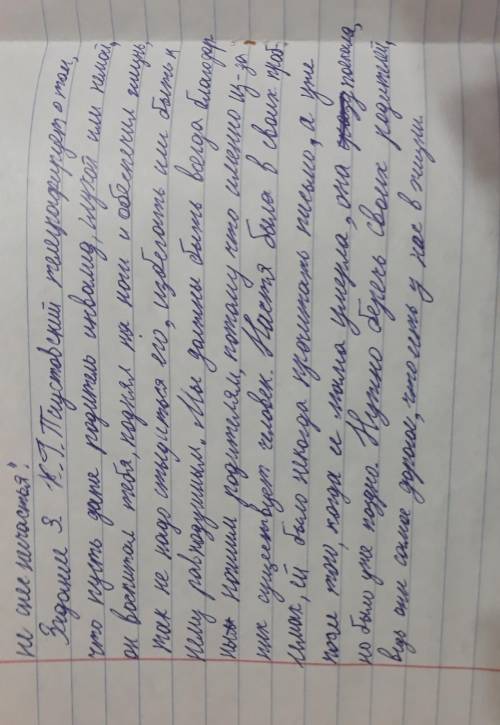 не снег несчастья".
Задание 3 К.Г.Паустовский телеграфирует о том,
что пусть даже родитель инвалид, глухой или немой,
он воспитал тебя, поднял на ноги и обеспечил жизнь,
так не надо стыдиться его, избегать или быть к
нему равнодушным. Мы должны быть всегда благодар-
ны нашим родителям, потому что именно из-за
них существует человек. Настя была в своих проб-
лемах, ей было некогда прочитать письмо, а уже
после того, когда её мама умерла, она поняла,
но было уже поздно. Нужно беречь своих родителей,
ведь они самое дорогое, что есть у нас в жизни.